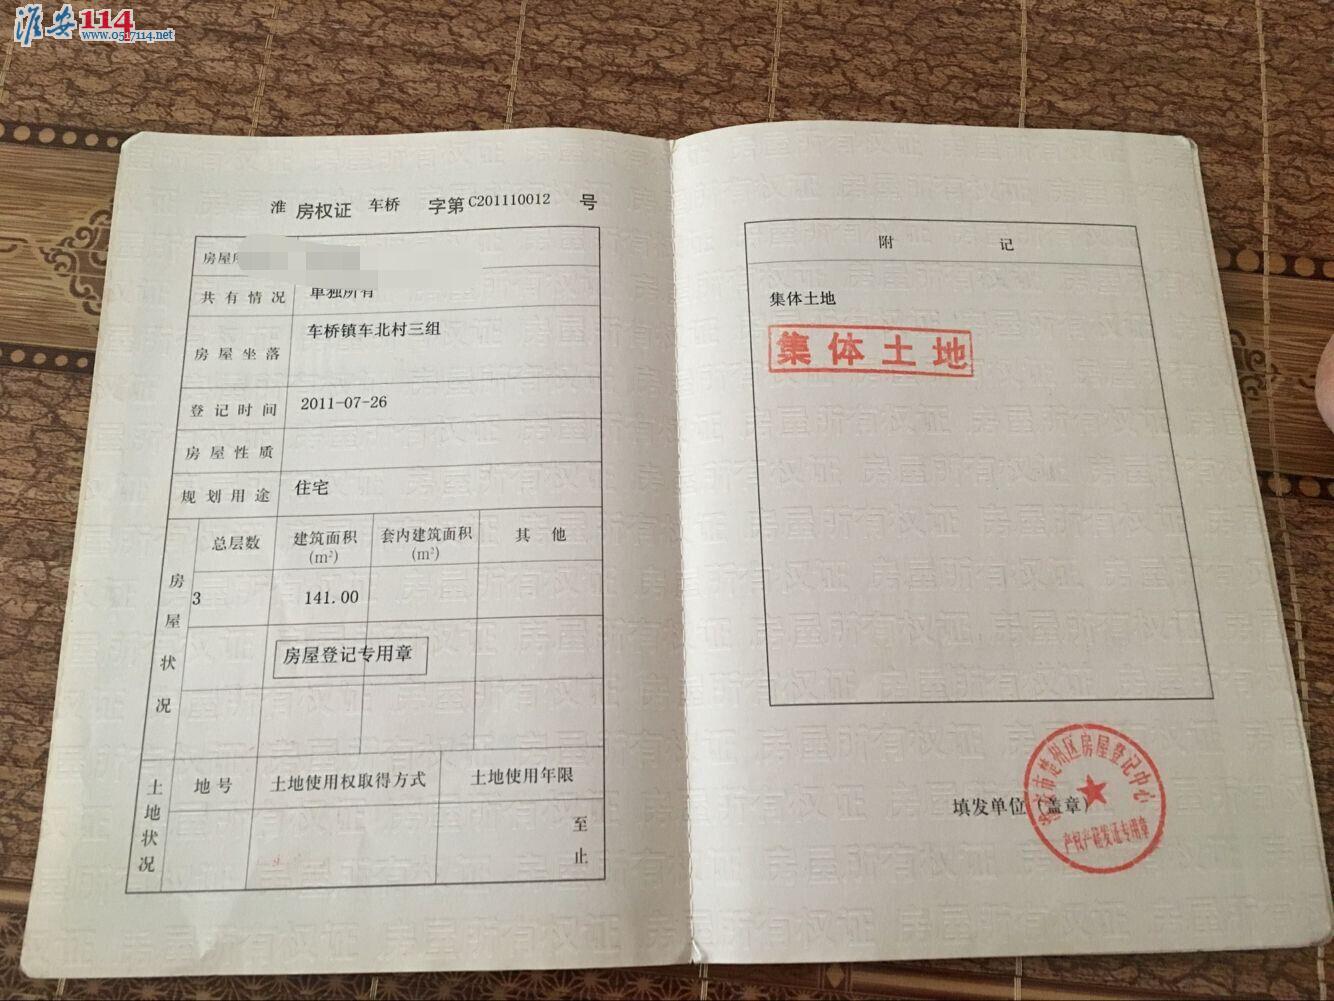 淮安114
www.0517114.net
淮 房权证 车桥 字第 C201110012 号
房屋
共有情况 单独所有
房屋坐落 车桥镇车北村三组
登记时间 2011-07-26
房屋性质
规划用途 住宅
房屋状况
总层数 建筑面积(m²) 套内建筑面积(m²) 其他
3 141.00
房屋登记专用章
土地状况
地号 土地使用权取得方式 土地使用年限
至
止
附记
集体土地
集体土地
填发单位(盖章)
淮安市楚州区房屋登记中心
产权产籍发证专用章